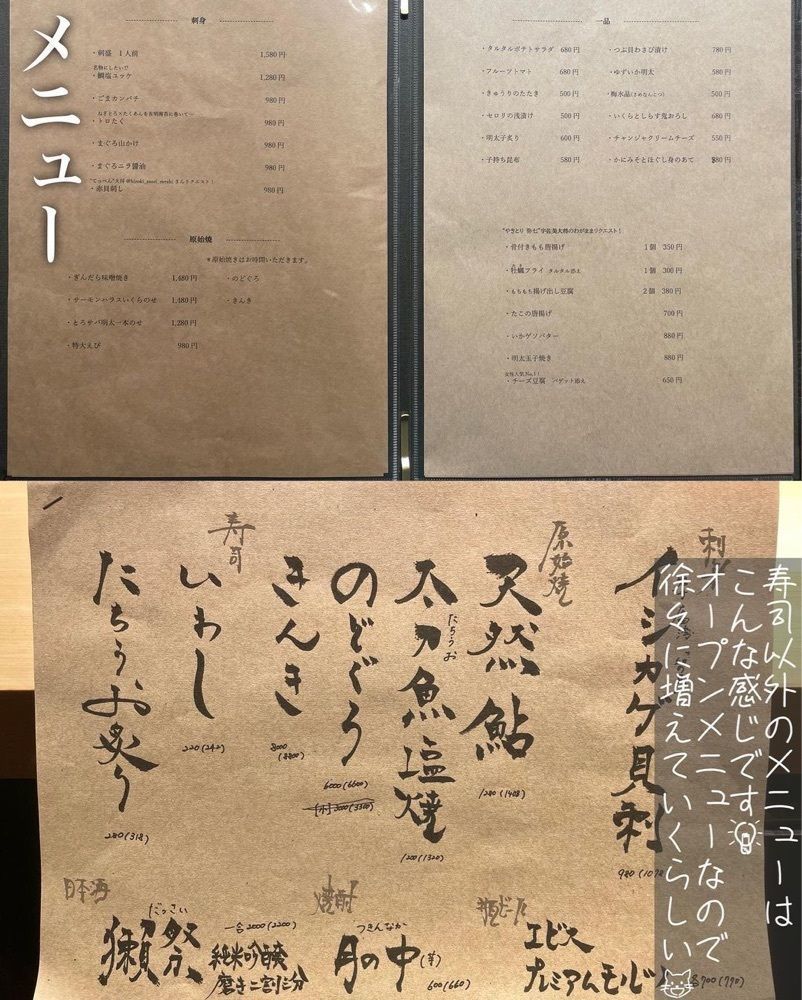 メニュー
刺身
・刺盛 1人前 1,580円
名物にしたいで
・鯛塩ユッケ 1,280円
・ごまカンパチ 980円
ねぎとろ×たくあんを有明海苔に巻いて〜
・トロたく 980円
・まぐろ山かけ 980円
・まぐろニラ醤油 980円
・赤貝刺し 980円
原始焼
＊原始焼きはお時間いただきます。
・ぎんだら味噌焼き 1,480円
・サーモンハラスいくらのせ 1,480円
・とろサバ明太一本のせ 1,280円
・特大えび 980円
・のどぐろ
・きんき
一品
・タルタルポテトサラダ 680円
・フルーツトマト 680円
・きゅうりのたたき 500円
・セロリの浅漬け 500円
・明太子炙り 600円
・子持ち昆布 580円
・つぶ貝わさび漬け 780円
・ゆずいか明太 580円
・梅水晶(さめなんこつ) 500円
・いくらとしらす鬼おろし 680円
・チャンジャクリームチーズ 550円
・かにみそとほぐし身のあて 880円
"やきとり 弥七"宇佐美大将のわがままリクエスト！
・骨付きもも唐揚げ 1個 350円
・牡蠣フライ タルタル添え 1個 300円
・もちもち揚げ出し豆腐 2個 380円
・たこの唐揚げ 700円
・いかゲソバター 880円
・明太玉子焼き 880円
女性人気No.1！
・チーズ豆腐 バゲット添え 650円
寿司以外のメニューは
こんな感じです
オープンメニューなので
徐々に増えていくらしい
イシカゲ貝刺
980
原始焼
天然鮎
1280(1408)
太刀魚塩焼
たちうお
1200(1320)
のどぐろ
6000(6600)
きんき
8000
(8800)
寿司
いわし
220(242)
たちうお炙り
280(318)
日本酒
だっさい
獺祭
一合2000(2200)
純米吟醸
磨き二割三分
焼酎
つきんなか
月の中(芋)
600(660)
瓶ビール
エビス
プレミアムモルツ
各700(770)